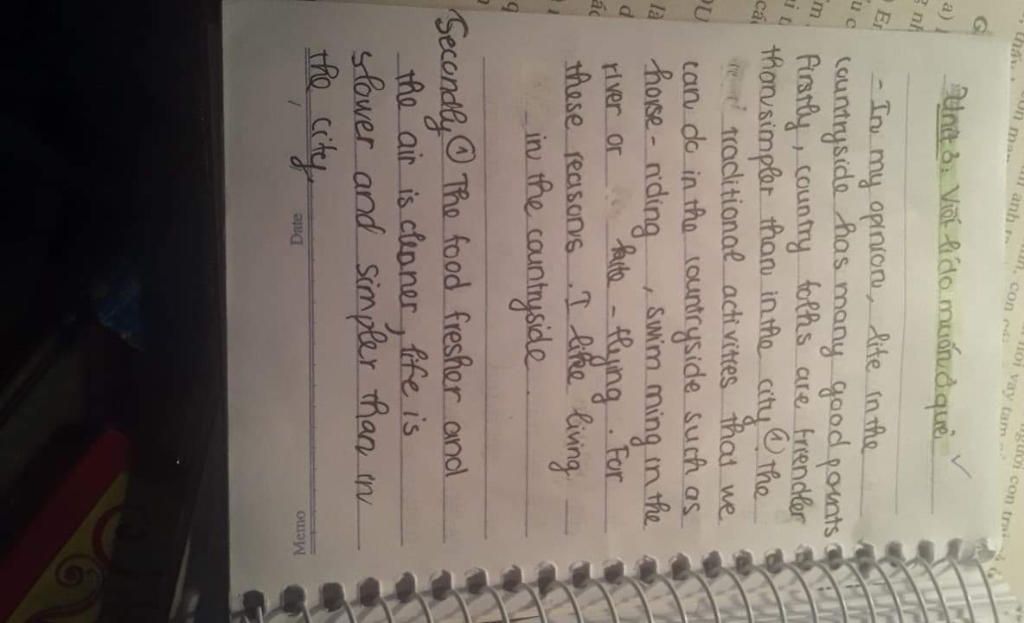 Unit 8: Viết lí do muốn ở quê
- In my opinion, life in the
countryside has many good pounts
Firstly, country folks are friender
than simpler than in the city ① The
traditional activities that we
can do in the countryside such as
horse - riding, swimming in the
river or kite - flying. For
these reasons. I like living
in the countryside.
Secondly ① The food fresher and
the air is cleaner, life is
slower and simpler than in
the city.
Date
Memo